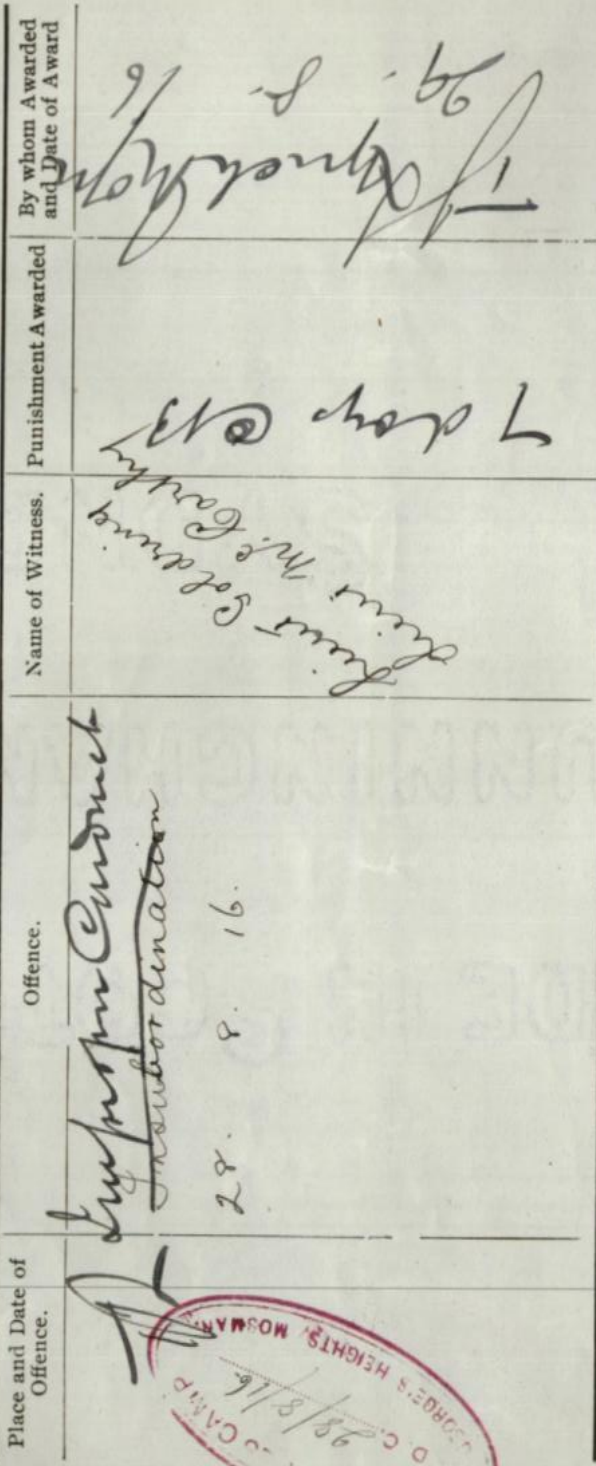 Place and Date of
Offence.
Offence.
Name of Witness.
Punishment Awarded
By whom Awarded
and Date of Award
CAMP
D. C. 28/8/16
GEORGE'S HEIGHTS, MOSMAN
Improper Conduct
Insubordination
28. 8. 16.
Lieut Goldring
Lieut McCarthy
7 days CB
29. 8. 16